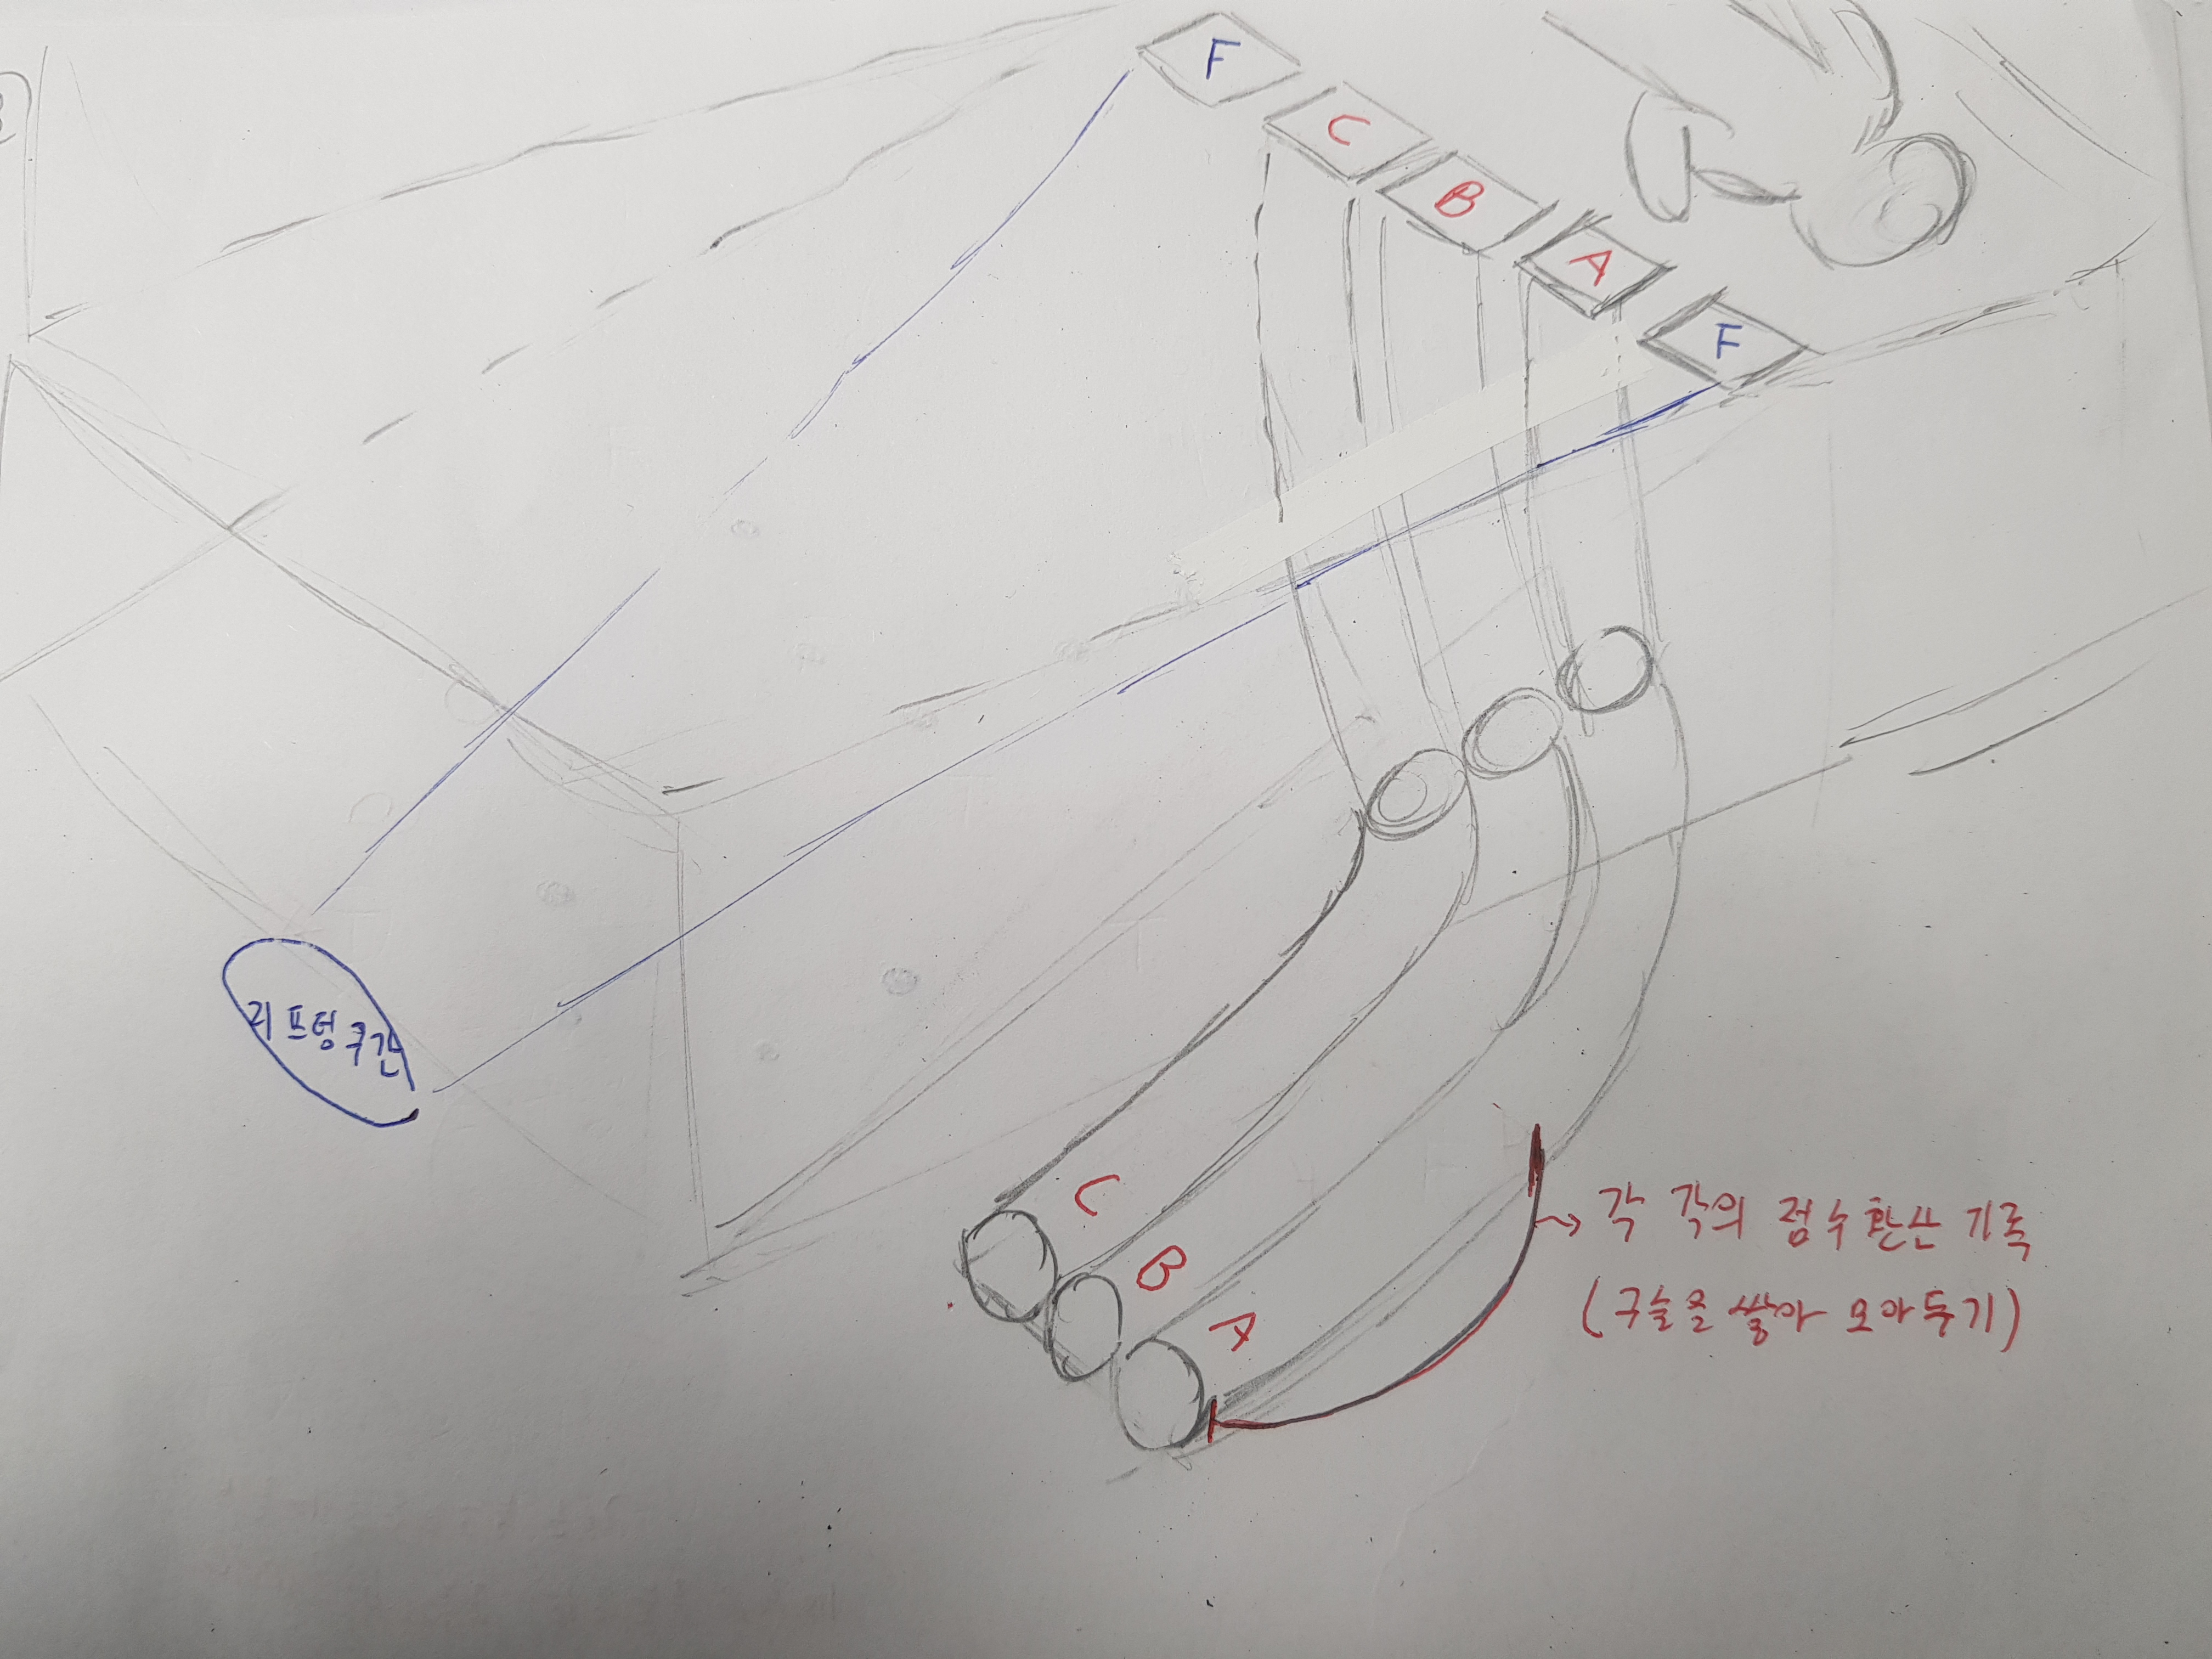 F
C
B
A
F
리프팅 구간
C
B
A
각 각의 점수환산 기록
(구슬을 쌓아 모아두기)